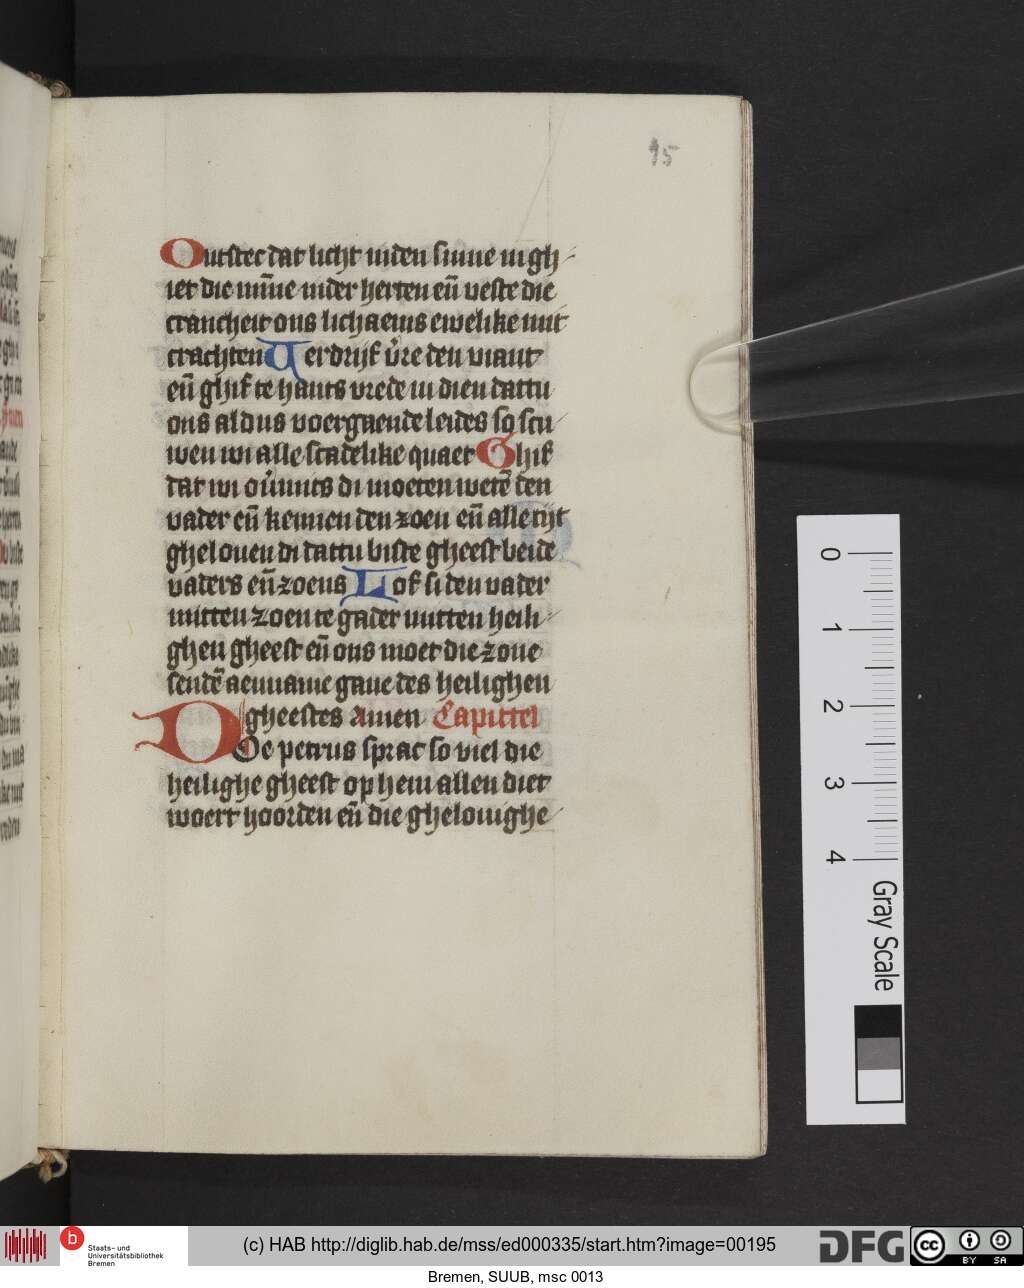 95
Ontstec dat licht inden sinne in gh
iet die miñe inder herten eñ veste die
crancheit ons lichaems ewelike mit
crachten Uerdrijf v̄re den viant
eñ ghif te hants vrede in dien dattu
ons aldus voergaende leides so scu
wen wi alle scadelike quaet Ghif
dat wi ov̄mits di moeten wetē den
vader eñ kennen den zoen eñ alle tijt
gheloven di dattu biste gheest beide
vaders eñ zoens Lof si den vader
mitten zoen te gader mitten heili
ghen gheest eñ ons moet die zone
sendē aenname gaue des heilighen
gheestes Amen Capittel
Doe petrus sprac so viel die
heilighe gheest op hem allen diet
woert hoorden eñ die ghelouighe
0
1
2
3
4
Gray Scale
b
Staats- und
Universitätsbibliothek
Bremen
(c) HAB http://diglib.hab.de/mss/ed000335/start.htm?image=00195
DFG
cc
BY SA
Bremen, SUUB, msc 0013